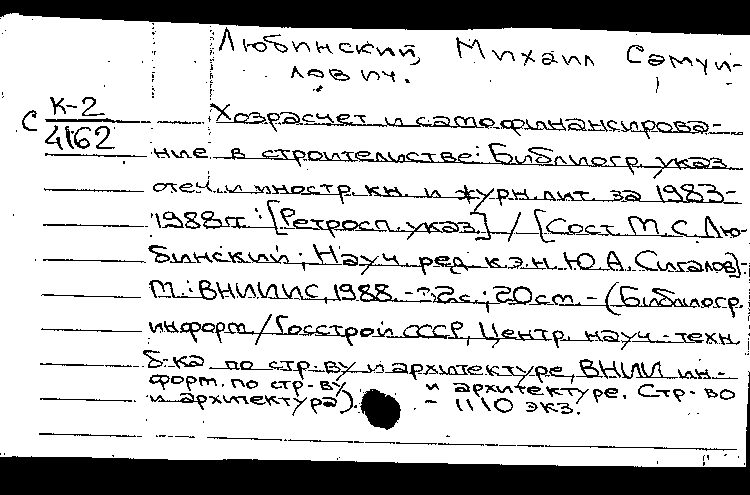 Любинский, Михаил Самуи-
лович.
С К-2
4162
Хозрасчет и самофинансирова-
ние в строительстве: Библиогр. указ.
отеч. и иностр. кн. и журн. лит. за 1983-
1988 гг.: [Ретросп. указ.] / [Сост. М. С. Лю-
бинский; Науч. ред. к.э.н. Ю. А. Сигалов].-
М.: ВНИИИС, 1988. - с.; 20 см. - (Библиогр.
информ. / Госстрой СССР, Центр. науч.-техн.
б-ка по стр-ву и архитектуре, ВНИИ ин-
форм. по стр-ву и архитектуре. Стр-во
и архитектура). - 1110 экз.